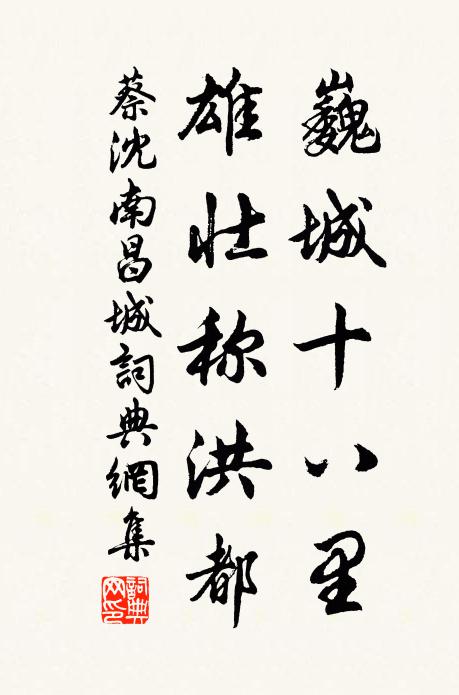 巍城十八里
雄壮称洪都
蔡沈南昌城詞典網集
詞典网印